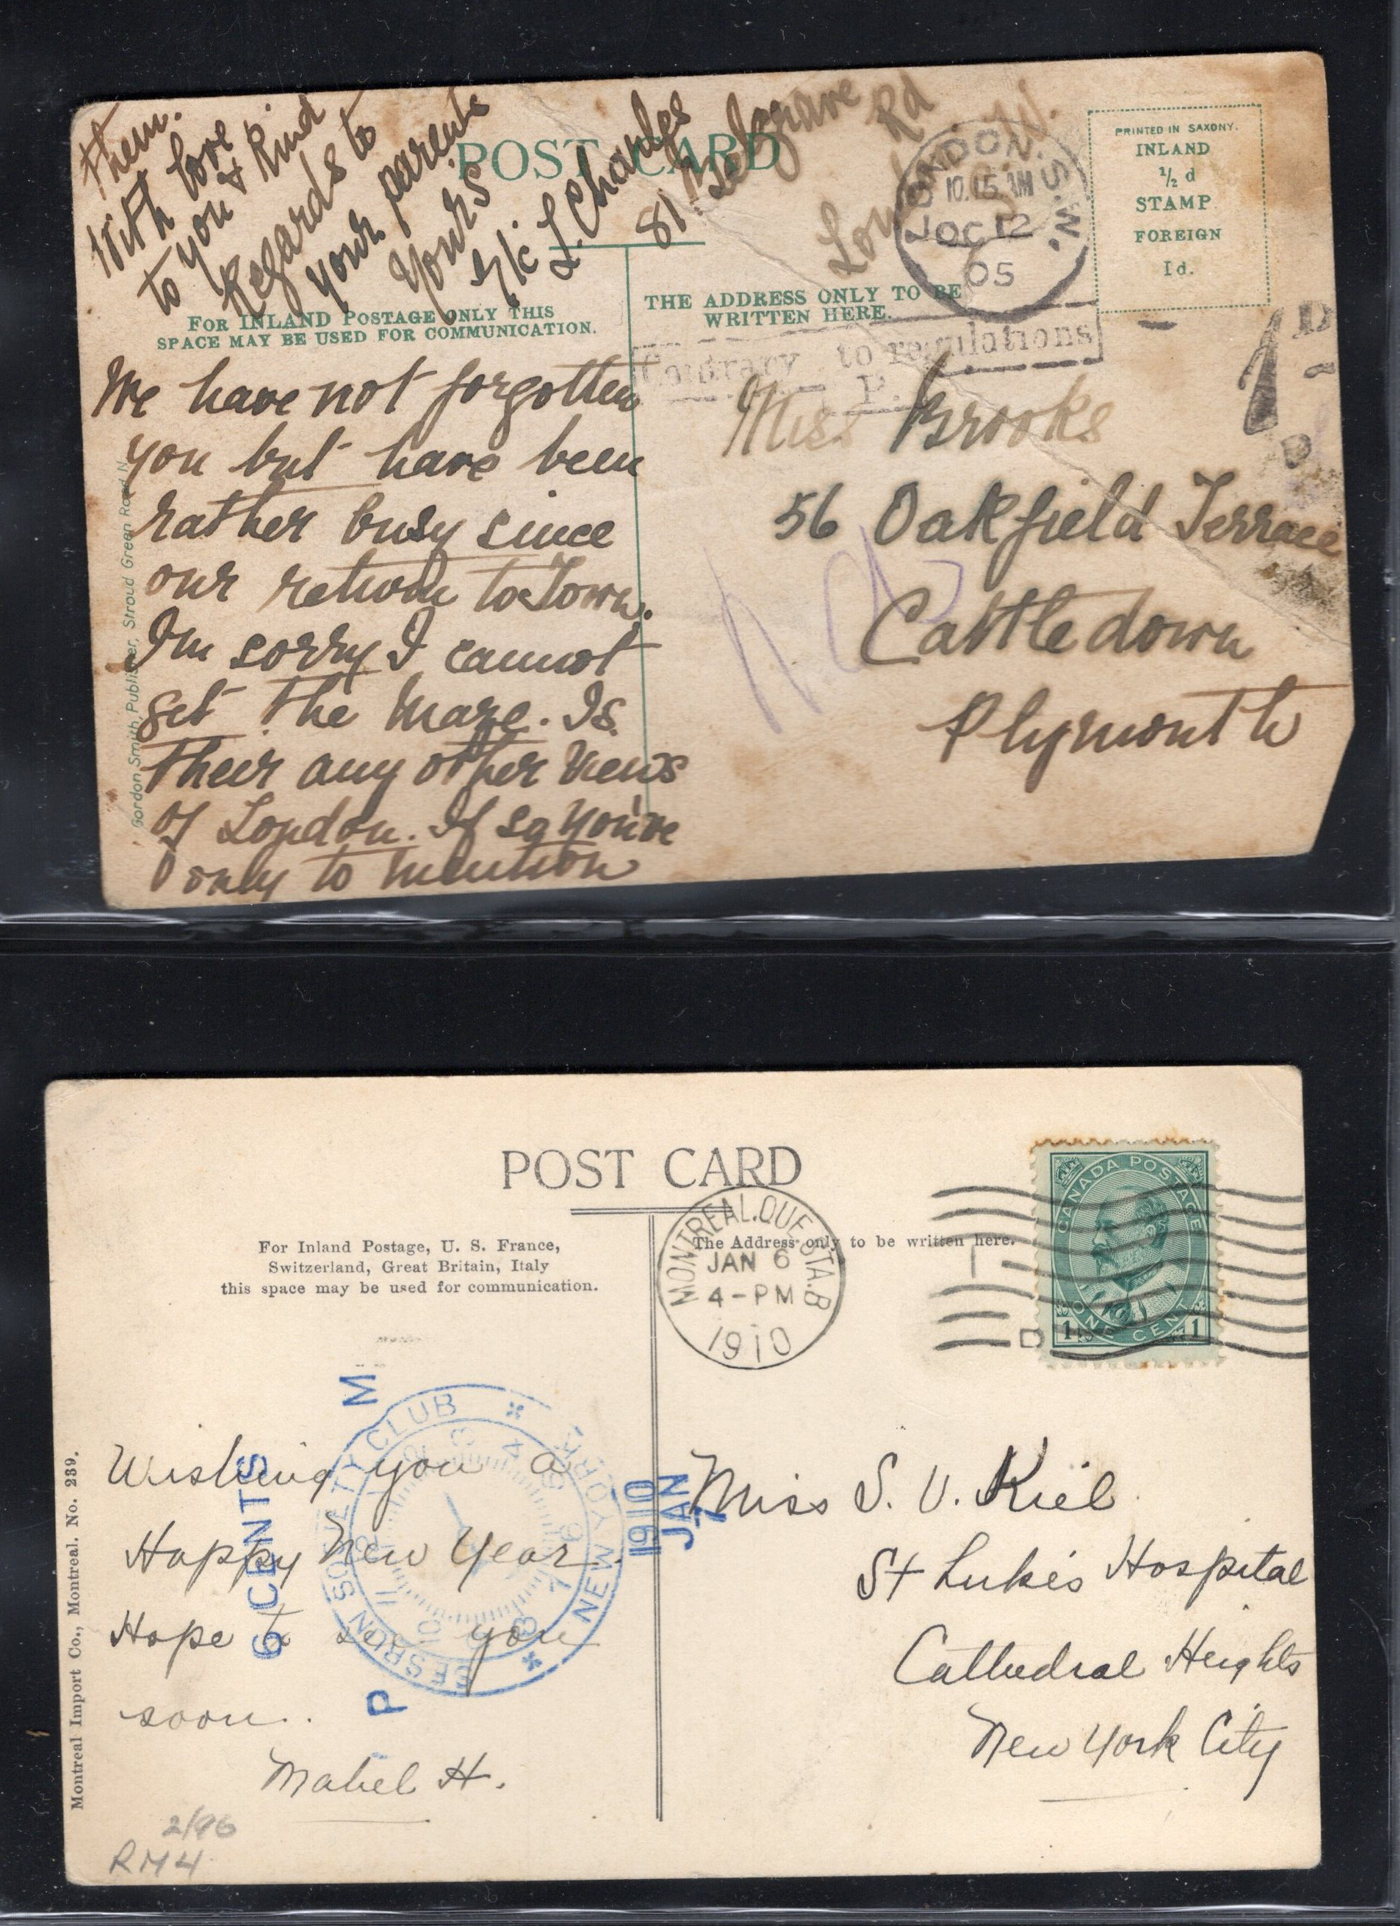 them.
With love
to you & Kind
Regards to
your parents
Yours
L Charles
81 Belgrave
Rd
S.W.
POST CARD
LONDON.S.W.
10.15 AM
OC 12
05
PRINTED IN SAXONY.
INLAND
½ d
STAMP
FOREIGN
1d.
FOR INLAND POSTAGE ONLY THIS
SPACE MAY BE USED FOR COMMUNICATION.
THE ADDRESS ONLY TO BE
WRITTEN HERE.
Contrary to regulations
P.
1D
We have not forgotten
you but have been
rather busy since
our return to Town.
I'm sorry I cannot
get the Maze. Is
their any other views
of London. If so you've
only to mention
Gordon Smith Publisher, Stroud Green Road N
Miss Brooks
56 Oakfield Terrace
Cattledown
Plymouth
POST CARD
For Inland Postage, U. S. France,
Switzerland, Great Britain, Italy
this space may be used for communication.
The Address only to be written here.
MONTREAL.QUE STA.B
JAN 6
4-PM
1910
CANADA POSTAGE
ONE CENT
1 1
Wishing you a
Happy New Year.
Hope to see you
soon.
Mabel H.
6 CENTS
P M
SOCIETY CLUB
NEW YORK
1910
JAN
7
Miss S. V. Kiel
St Luke's Hospital
Cathedral Heights
New York City
Montreal Import Co., Montreal. No. 239.
2/96
RM4